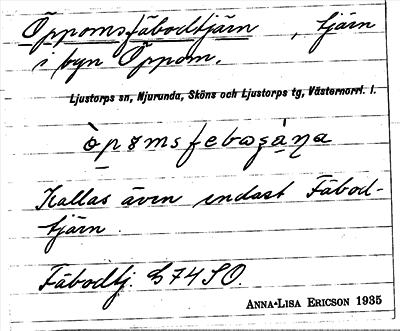 Öppomsfäbodtjärn, tjärn
i byn Öppom.
Ljustorps sn, Njurunda, Sköns och Ljustorps tg, Västernorrl. l.
Kallas även endast Fäbod-
tjärn.
Fäbodtj. G74SO.
ANNA-LISA ERICSON 1935